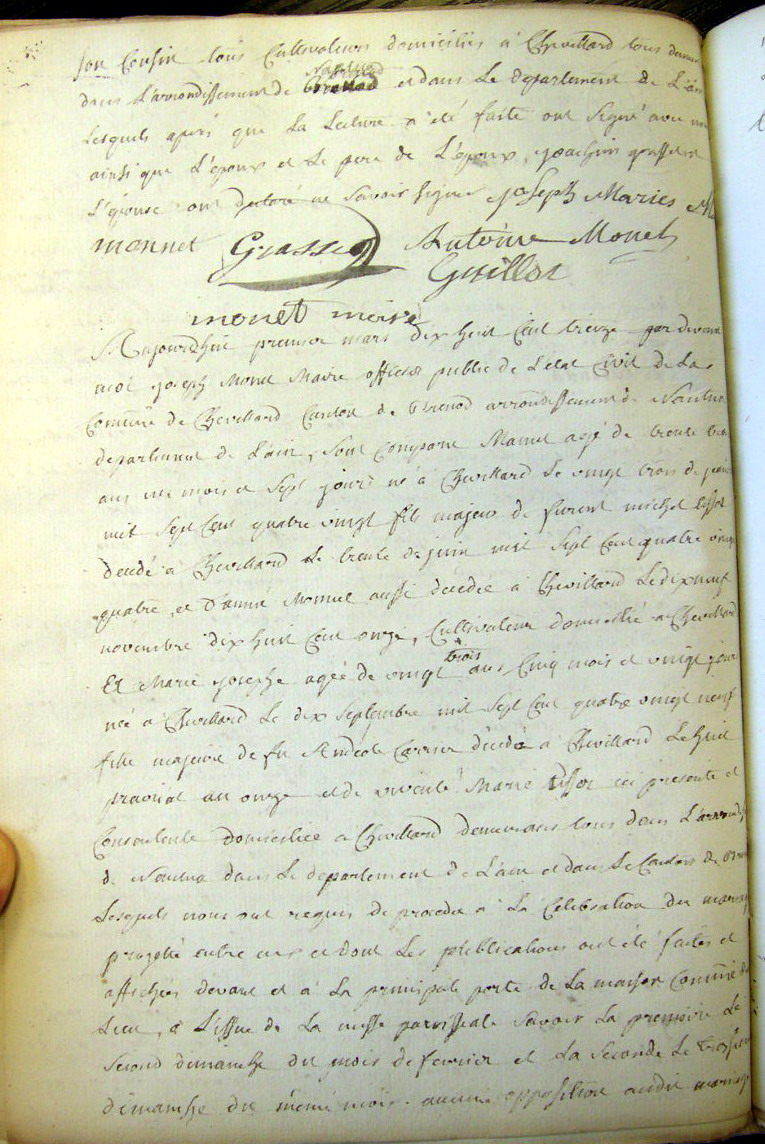 son Cousin tous Cultivateurs domiciliés à Chevillard tous
dans L'arrondissement de Nantua et dans Le departement de L'ain
Lesquels après que La Lecture a été faite ont Signé avec
ainsi que L'epoux et Le pere de L'epoux, joachim
L'epouse ont declaré ne Savoir signer joseph Maries
monnet Grasset Antoine Monet
Guillot
monet meire
Aujourdhui premier mars dix huit Cent treize par devant
moi joseph Monet Maire officier public de L'etat Civil de La
Commune de Chevillard Canton de Brenod arrondissement de Nantua
departement de L'ain, Sont Comparu Manuel agé de trente trois
ans un mois et Sept jours né à Chevillard Le vingt trois de
mil Sept Cent quatre vingt fils majeur de furent michel tissot
decedé à Chevillard Le trente de juin mil Sept Cent quatre vingt
quatre, et D'anne Monnet aussi decedée à Chevillard Le dixneuf
novembre dix huit Cent onze, Cultivateur domicilié a Chevillard
Et Marie josephe agée de vingt trois ans, Cinq mois et vingt jours
née a Chevillard Le dix Septembre mil Sept Cent quatre vingt neuf
fille majeure de fu Andéole Carrier décédé a Chevillard Le huit
prairial an onze et de vivente Marie tissot ici presente et
Consentente domiciliée a Chevillard demeurants tous dans L'arrondis
de Nantua dans Le departement de L'ain et dans Le Canton de
Lesquels nous ont requis de proceder à La Celebration du mariage
projetté entre eux et dont Les publications ont été faites et
affichées devant et à La principale porte de La maison Commune du
Lieu, à L'issue de La messe parroissiale Savoir La premiere Le
Second dimanche du mois de fevrier et La Seconde Le troisieme
dimanche du même mois. aucune opposition audit mariage